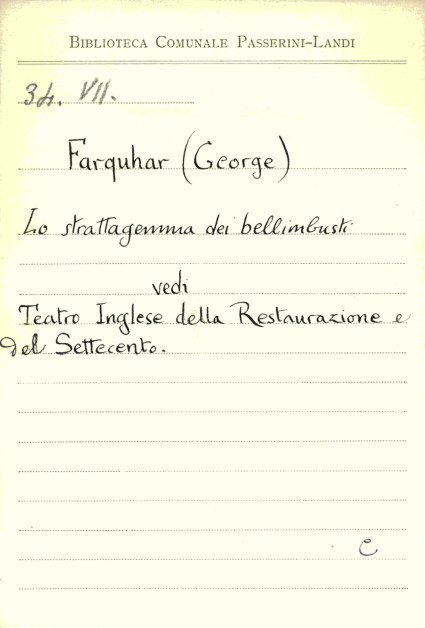 BIBLIOTECA COMUNALE PASSERINI-LANDI
34. VII.
Farquhar (George)
Lo strattagemma dei bellimbusti
vedi
Teatro Inglese della Restaurazione e
del Settecento.
C